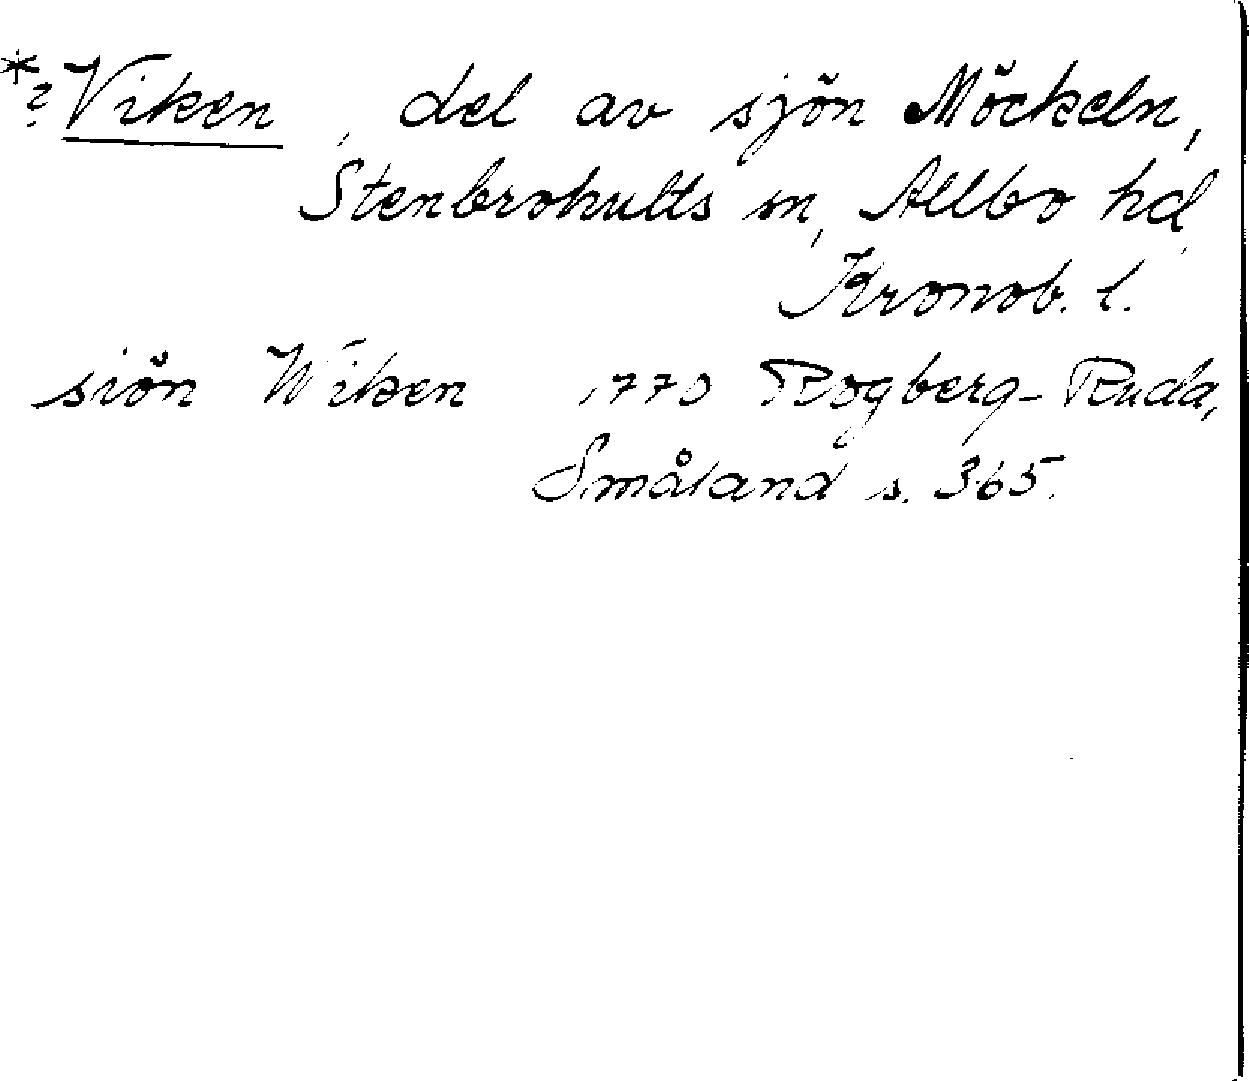 *? Viken, del av sjön Möckeln,
Stenbrohults sn, Allbo hd,
Kronob. l.
siön Wiken 1770 Rogberg-Ruda,
Småland s. 365.